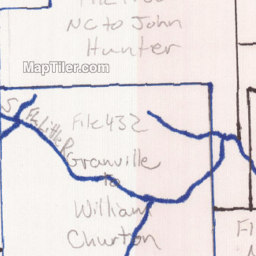 NC to John
Hunter
MapTiler.com
File 432
Granville
to
William
Churton